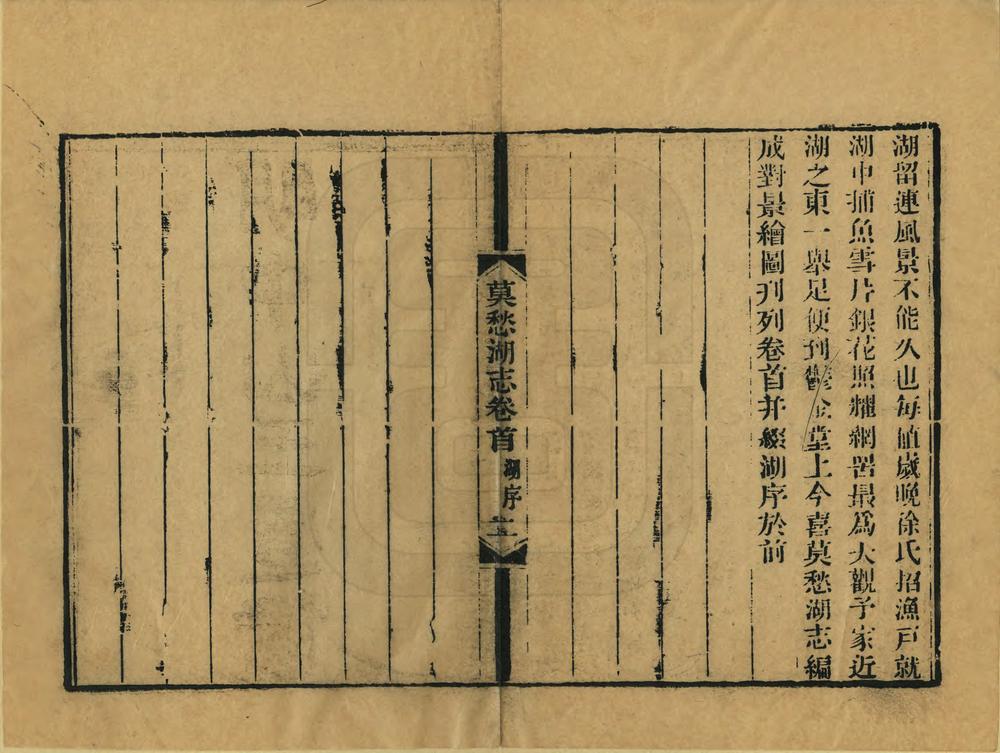 湖留連風景不能久也每値歲晚徐氏招漁戸就
湖中捕魚雪片銀花照耀網罟最爲大觀予家近
湖之東一舉足便到鬱金堂上今喜莫愁湖志編
成對景繪圖刋列卷首并綴湖序於前
莫愁湖志卷首
湖序